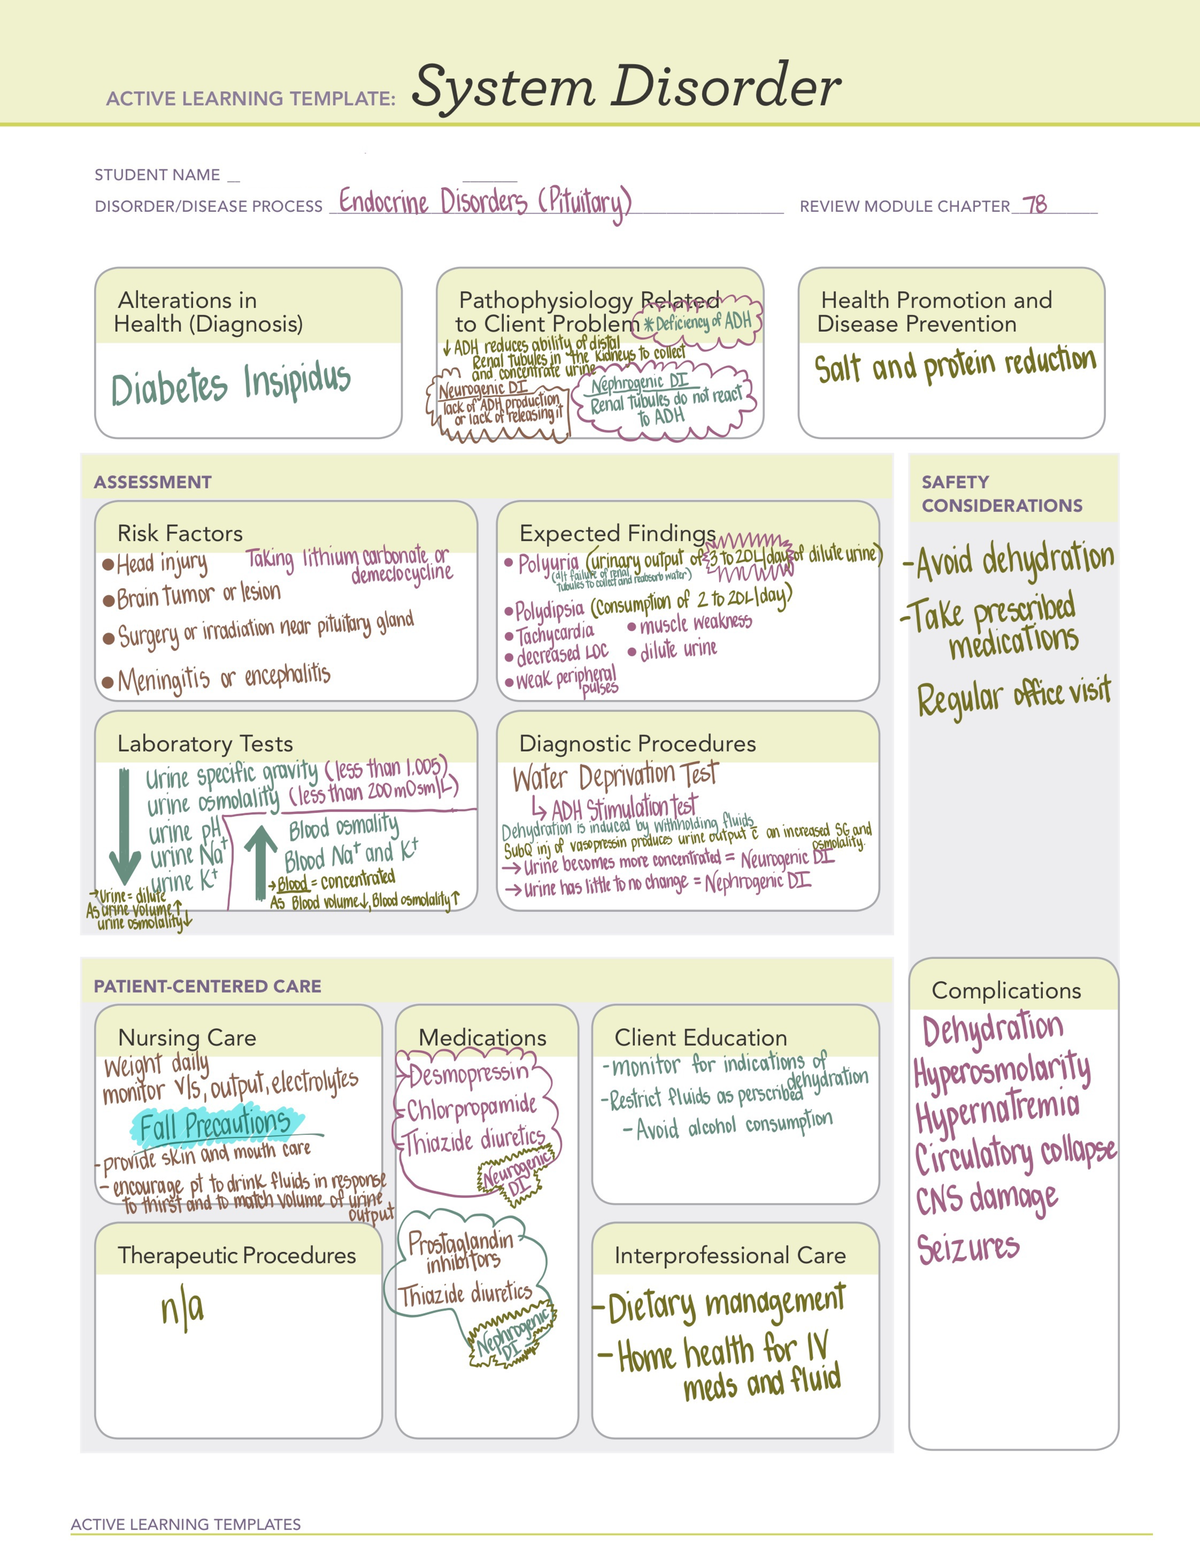 ACTIVE LEARNING TEMPLATE: System Disorder
STUDENT NAME
DISORDER/DISEASE PROCESS Endocrine Disorders (Pituitary) REVIEW MODULE CHAPTER 78
Alterations in
Health (Diagnosis)
Diabetes Insipidus
Pathophysiology Related
to Client Problem
*Deficiency of ADH
↓ ADH reduces ability of distal
Renal tubules in the kidneys to collect
and concentrate urine
Neurogenic DI
lack of ADH production
or lack of releasing it
Nephrogenic DI
Renal tubules do not react
to ADH
Health Promotion and
Disease Prevention
Salt and protein reduction
ASSESSMENT
Risk Factors
•Head injury
Taking lithium carbonate or
demeclocycline
•Brain tumor or lesion
•Surgery or irradiation near pituitary gland
•Meningitis or encephalitis
Expected Findings
•Polyuria (urinary output of 3 to 20L/day of dilute urine)
(d/t failure of renal
tubules to collect and reabsorb water)
•Polydipsia (consumption of 2 to 20L/day)
•Tachycardia
•decreased LOC
•weak peripheral
pulses
•muscle weakness
•dilute urine
Laboratory Tests
↓ urine specific gravity (less than 1.005)
urine osmolality (less than 200 mOsm/L)
urine pH
urine Na+
urine K+
→Urine = dilute
As urine volume↑
urine osmolality↓
↑ Blood osmality
Blood Na+ and K+
→Blood = concentrated
As Blood volume↓, Blood osmolality↑
Diagnostic Procedures
Water Deprivation Test
↳ ADH Stimulation test
Dehydration is induced by withholding fluids
SubQ inj of vasopressin produces urine output c̄ an increased SG and
osmolality.
→ Urine becomes more concentrated = Neurogenic DI
→ urine has little to no change = Nephrogenic DI
SAFETY
CONSIDERATIONS
-Avoid dehydration
-Take prescribed
medications
Regular office visit
Complications
Dehydration
Hyperosmolarity
Hypernatremia
Circulatory collapse
CNS damage
Seizures
PATIENT-CENTERED CARE
Nursing Care
Weight daily
monitor v/s, output, electrolytes
Fall Precautions
-provide skin and mouth care
- encourage pt to drink fluids in response
to thirst and to match volume of urine
output
Medications
-Desmopressin
-Chlorpropamide
-Thiazide diuretics
Neurogenic
DI
Prostaglandin
inhibitors
Thiazide diuretics
Nephrogenic
DI
Client Education
-monitor for indications of
dehydration
-Restrict fluids as perscribed
-Avoid alcohol consumption
Therapeutic Procedures
n/a
Interprofessional Care
-Dietary management
-Home health for IV
meds and fluid
ACTIVE LEARNING TEMPLATES